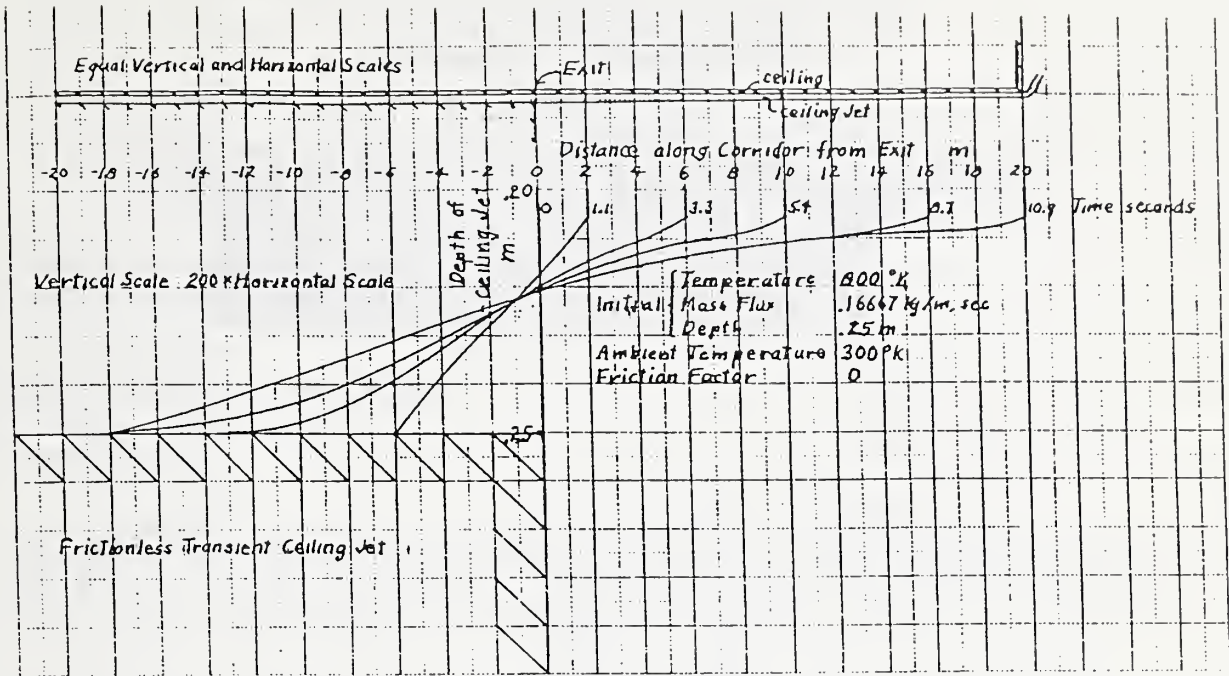 Equal Vertical and Horizontal Scales
Exit
ceiling
Ceiling Jet
Distance along Corridor from Exit m
-20 -18 -16 -14 -12 -10 -8 -6 -4 -2 0 2 4 6 8 10 12 14 16 18 20
Depth of Ceiling Jet m
.20
0 1.1 3.3 5.4 8.7 10.9 Time seconds
Vertical Scale 200 × Horizontal Scale
Initial
Temperature 800 °K
Mass Flux .16667 kg/m, sec
Depth .25 m
Ambient Temperature 300 °K
Friction Factor 0
.25
Frictionless Transient Ceiling Jet